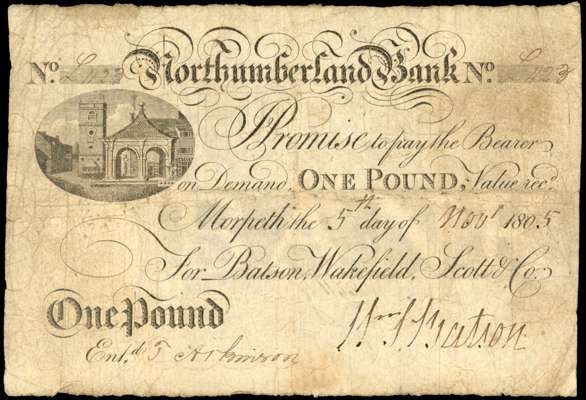 No. L1123 Northumberland Bank No. L1123
Promise to pay the Bearer
on Demand, ONE POUND, Value rec.d
Morpeth the 5th day of Nov.r 1805
For Batson, Wakefield, Scott & Co.
One Pound Wm. Batson
Ent.d T Atkinson